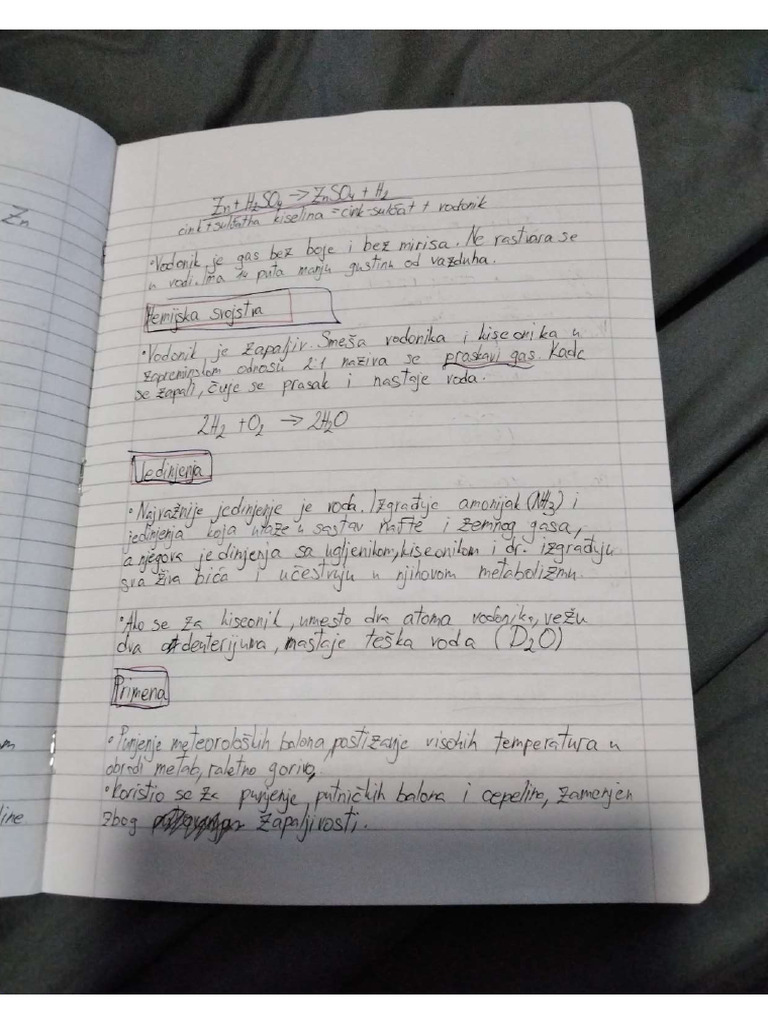 Zn
Zn + H2SO4 → ZnSO4 + H2
cink + sulfatna kiselina = cink-sulfat + vodonik
• Vodonik je gas bez boje i bez mirisa. Ne rastvara se
u vodi. Ima puta manju gustinu od vazduha.
Hemijska svojstva
• Vodonik je zapaljiv. Smeša vodonika i kiseonika u
zapreminskom odnosu 2:1 naziva se praskavi gas. Kada
se zapali, čuje se prasak i nastaje voda.
2H2 + O2 → 2H2O
Jedinjenja
• Najvažnije jedinjenje je voda. Izgrađuje amonijak (NH3) i
jedinjenja koja ulaze u sastav nafte i zemnog gasa,
a njegova jedinjenja sa ugljenikom, kiseonikom i dr. izgrađuju
sva živa bića i učestvuju u njihovom metabolizmu.
• Ako se za kiseonik, umesto dva atoma vodonika, vežu
dva deuterijuma, nastaje teška voda (D2O)
Primena
• Punjenje meteoroloških balona, postizanje visokih temperatura u
obradi metala, raketno gorivo.
• Koristio se za punjenje putničkih balona i cepelina, zamenjen
zbog zapaljivosti.